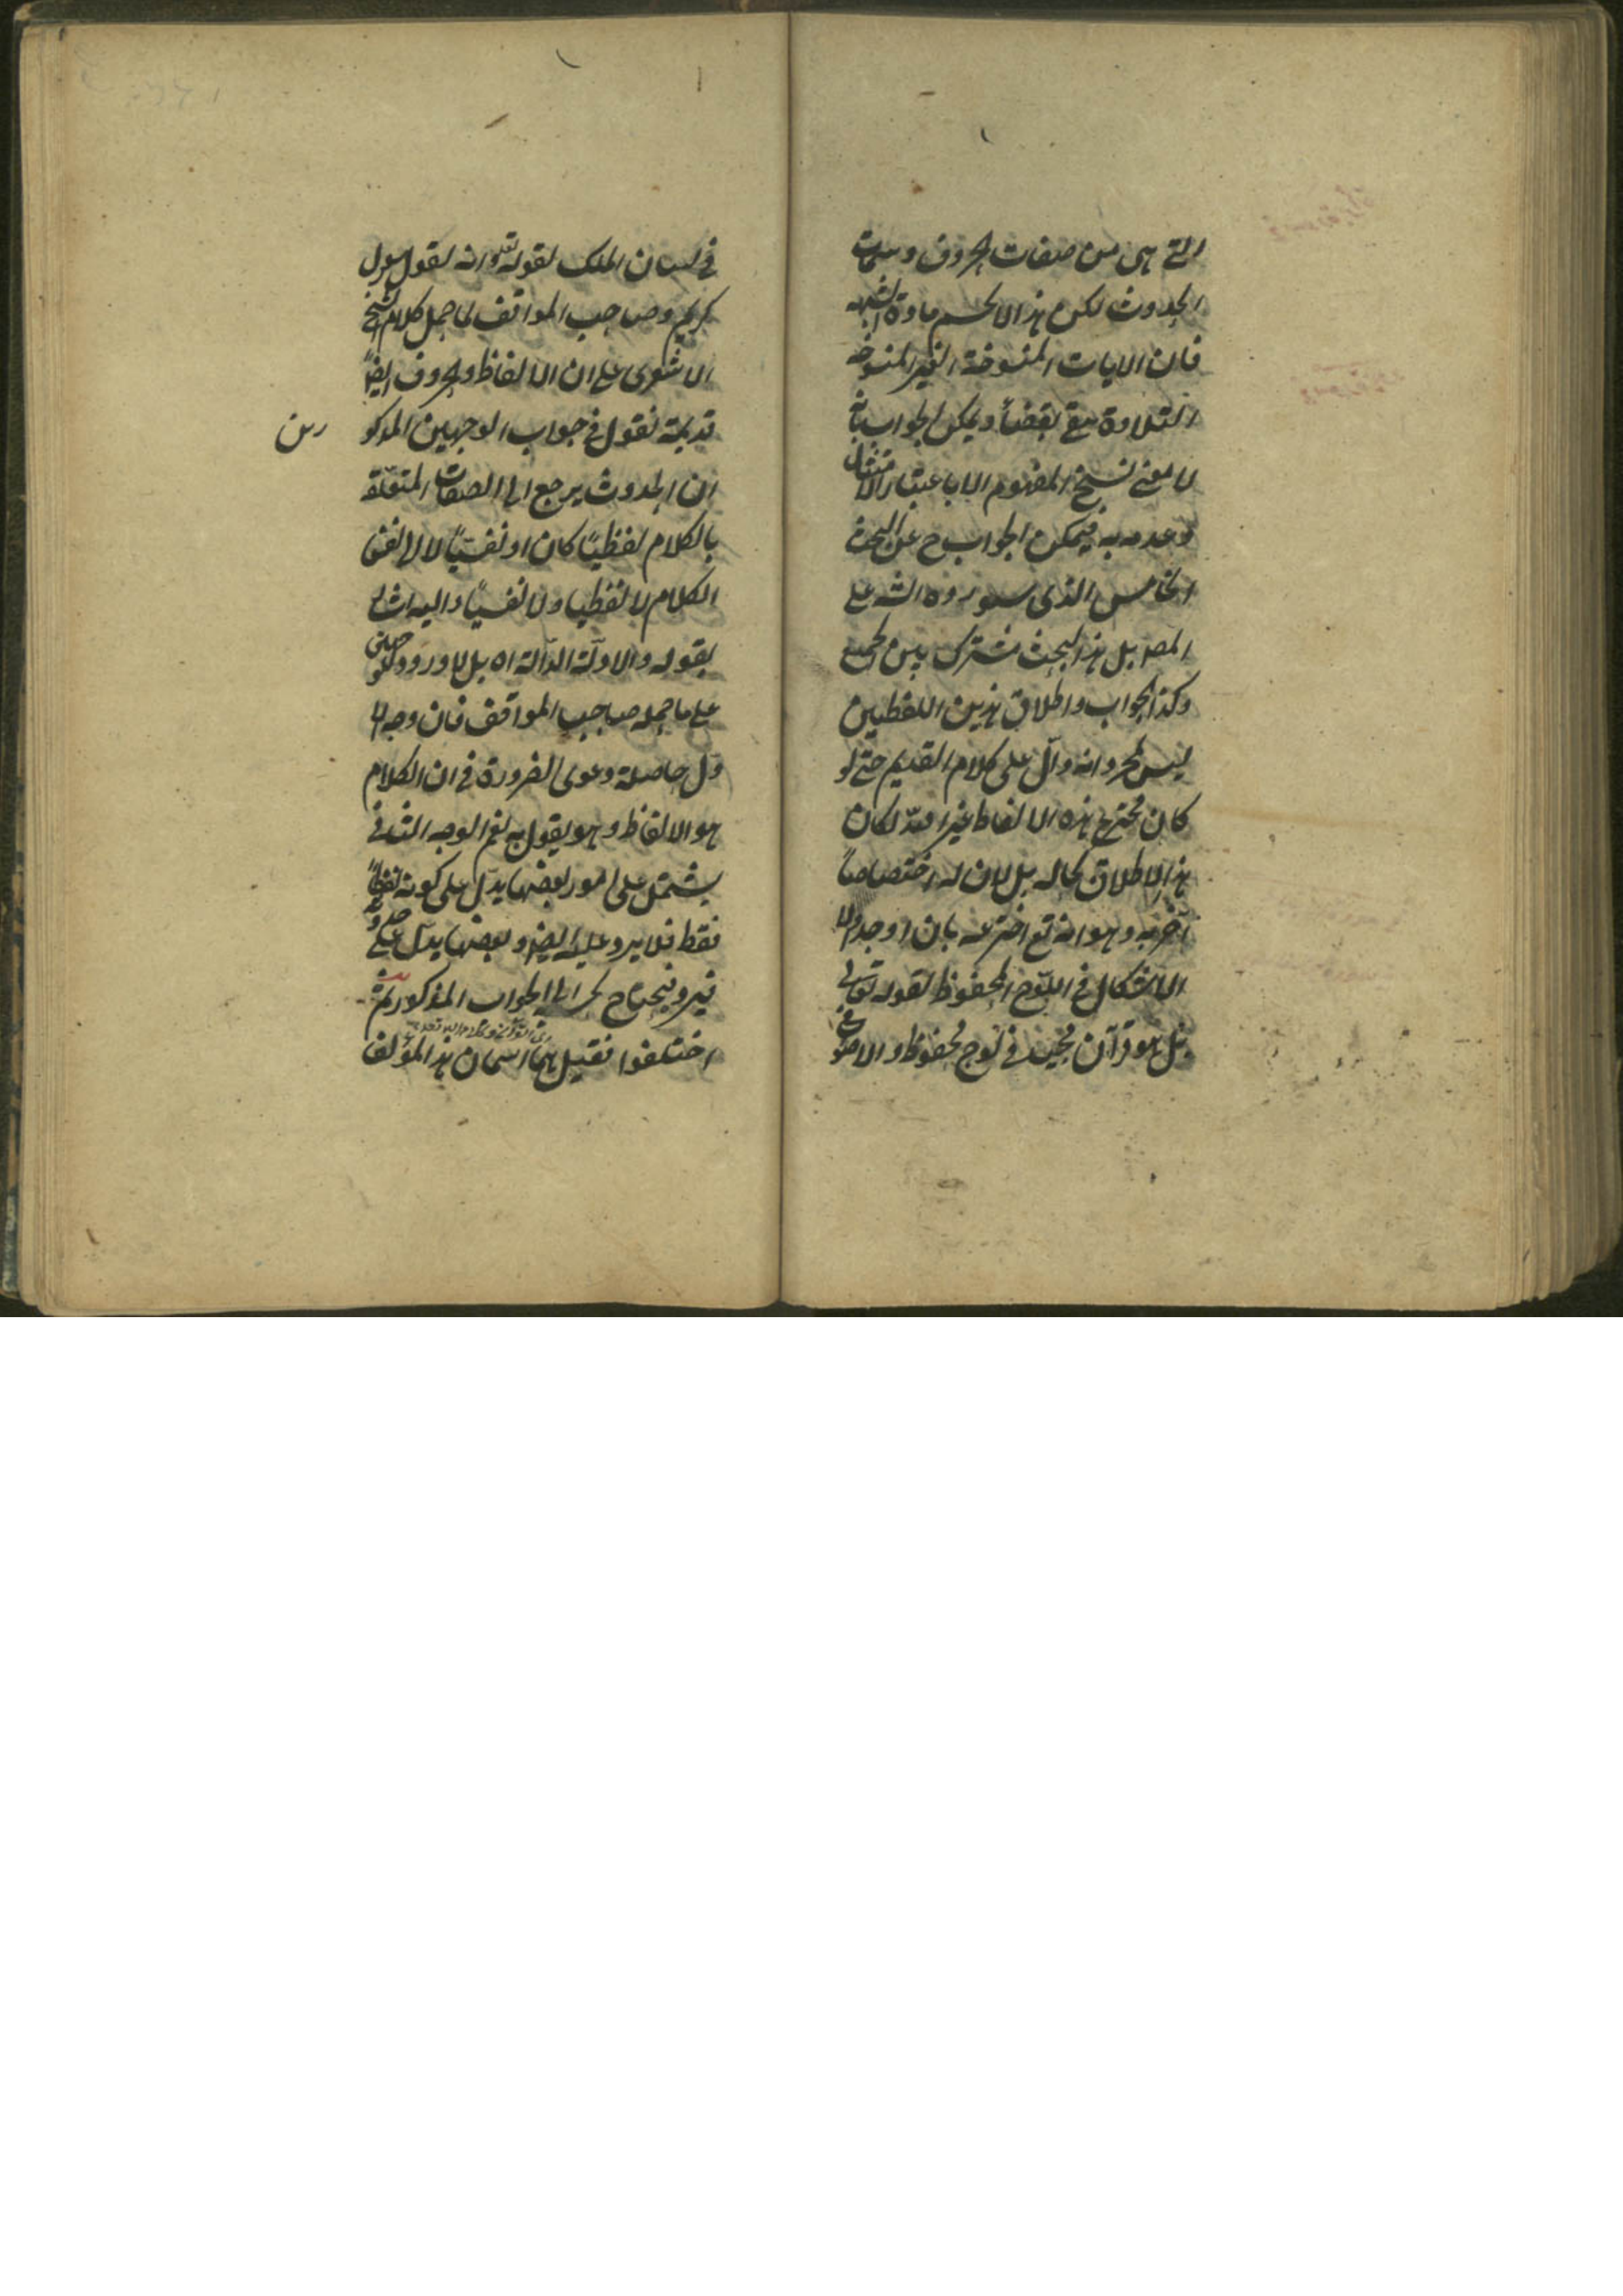 التى هى من صفات الحروف وسمات
الحدوث لكن هذا لا يحسم مادة الشبهه
فان الايات المنسوخة الغير المنسوخه
التلاوة تبقى نقضاً ويمكن الجواب بانه
لا معنى لنسخ المفهوم الا باعتبار الامتثال
وعدمه به فيمكن الجواب ح عن البحث
الخامس الذى سيورده الش على
المصر بل هذا البحث مشترك بين الجميع
وكذا الجواب واطلاق هذين اللفظين
ليس لمجرد انه دال على كلام القديم حتى لو
كان مخترع هذه الالفاظ غير الله لكان
هذا الاطلاق بحاله بل لان له اختصاصاً
آخر به وهو انه تع اخترعه بان اوجد اولا
الاشكال فى اللوح المحفوظ لقوله تعالى
بل هو قرآن مجيد فى لوح محفوظ والاصوا
فى لسان الملك لقوله تعه وانه لقول رسول
كريم وصاحب المواقف لما حمل كلام الشيخ
الاشعرى على ان الالفاظ والحروف ايضاً
قديمة نقول فى جواب الوجهين المذكو
رين
ان الحدوث يرجع الى الصفات المتعلقة
بالكلام لفظيًا كان او نفسيًا لا الى نفس
الكلام لا لفظيا ولا نفسيًا واليه اشار
بقوله والادلّة الدالّة اه بل لا ورود
على ما حمله صاحب المواقف فان وجه الا
وّل حاصله دعوى الضرورة فى ان الكلام
هو الالفاظ وهو يقول به نعم الوجه الثانى
يشتمل على امور بعضها يدلّ على كونه لفظيًا
فقط فلا يرد عليه ايضا وبعضها يدلّ على حدوثه
فيرد فيحتاج الى الجواب المذكور ثم
اختلفوا فقيل هما اسمان لهذا المؤلف